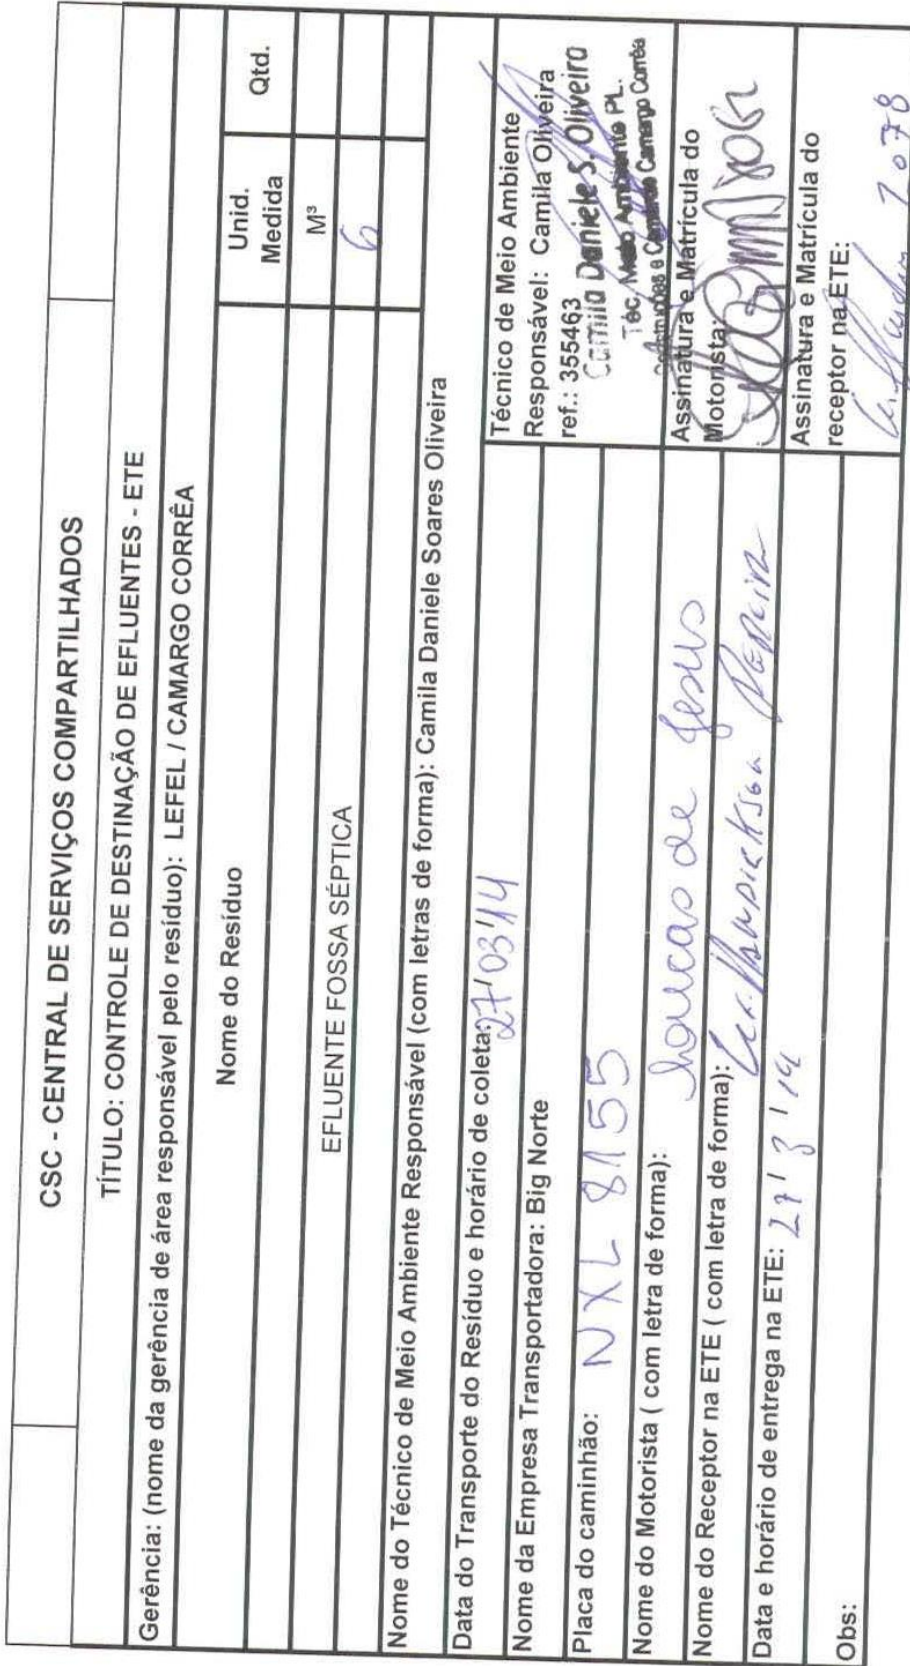 CSC - CENTRAL DE SERVIÇOS COMPARTILHADOS
TÍTULO: CONTROLE DE DESTINAÇÃO DE EFLUENTES - ETE
Gerência: (nome da gerência de área responsável pelo resíduo): LEFEL / CAMARGO CORRÊA
Nome do Resíduo
Unid.
Medida
Qtd.
M³
EFLUENTE FOSSA SÉPTICA
6
Nome do Técnico de Meio Ambiente Responsável (com letras de forma): Camila Daniele Soares Oliveira
Data do Transporte do Resíduo e horário de coleta: 27/03/14
Nome da Empresa Transportadora: Big Norte
Placa do caminhão: NXL 8155
Nome do Motorista ( com letra de forma): Loucas de Jesus
Nome do Receptor na ETE ( com letra de forma): Pereira
Data e horário de entrega na ETE: 27/3/14
Obs:
Técnico de Meio Ambiente
Responsável: Camila Oliveira
ref.: 355463
Camila Daniele S. Oliveira
Téc. Meio Ambiente PL.
Construções e Comércio Camargo Corrêa
Assinatura e Matrícula do
Motorista:
Assinatura e Matrícula do
receptor na ETE:
7078